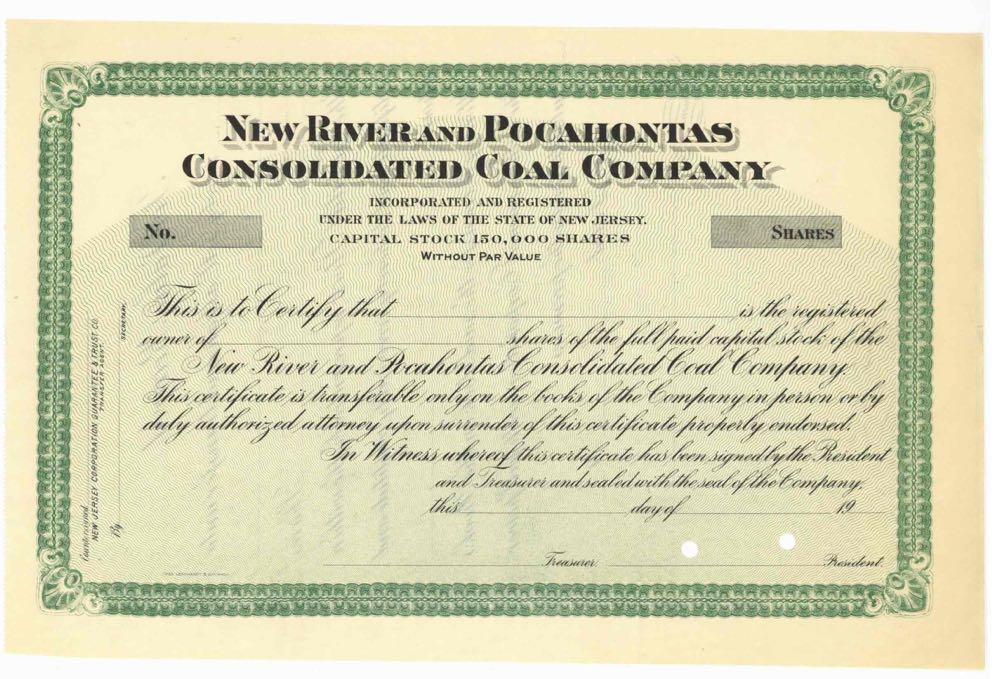 NEW RIVER AND POCAHONTAS
CONSOLIDATED COAL COMPANY
INCORPORATED AND REGISTERED
UNDER THE LAWS OF THE STATE OF NEW JERSEY.
CAPITAL STOCK 150,000 SHARES
WITHOUT PAR VALUE
No.
SHARES
This is to Certify that is the registered
owner of shares of the full paid capital stock of the
New River and Pocahontas Consolidated Coal Company.
This certificate is transferable only on the books of the Company in person or by
duly authorized attorney upon surrender of this certificate properly endorsed.
In Witness whereof this certificate has been signed by the President
and Treasurer and sealed with the seal of the Company,
this day of 19
Treasurer. President.
Countersigned
NEW JERSEY CORPORATION GUARANTEE & TRUST CO.
TRANSFER AGENT.
By
SECRETARY.